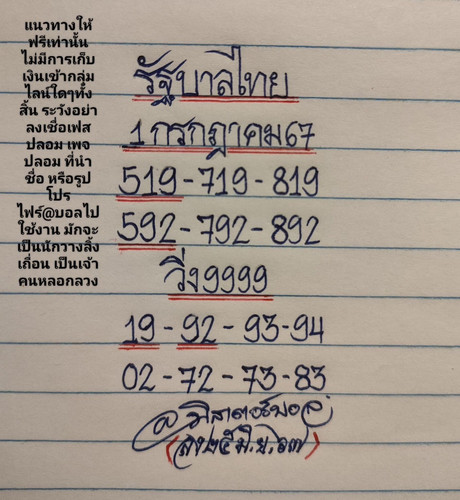 แนวทางให้
ฟรีเท่านั้น
ไม่มีการเก็บ
เงินเข้ากลุ่ม
ไลน์ใดๆทั้ง
สิ้น ระวังอย่า
ลงเชื่อเฟส
ปลอม เพจ
ปลอม ที่นำ
ชื่อ หรือรูป
โปร
ไฟร์@บอลไป
ใช้งาน มักจะ
เป็นนักวางลิ้ง
เถื่อน เป็นเจ้า
คนหลอกลวง
รัฐบาลไทย
1 กรกฎาคม 67
519 - 719 - 819
592 - 792 - 892
วิ่ง 9999
19 - 92 - 93 - 94
02 - 72 - 73 - 83
@มิสเตอร์บอล
(ลง ๒๕ มิ.ย. ๖๗)